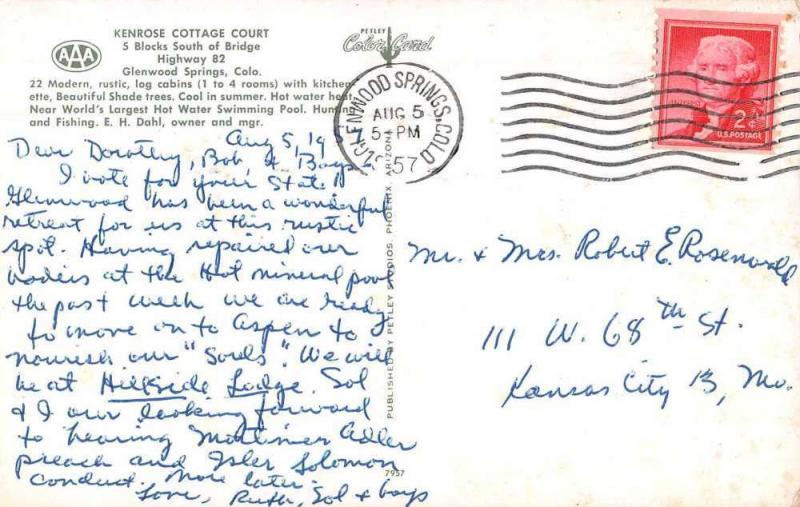 KENROSE COTTAGE COURT
5 Blocks South of Bridge
Highway 82
Glenwood Springs, Colo.
AAA
22 Modern, rustic, log cabins (1 to 4 rooms) with kitchen-
ette, Beautiful Shade trees. Cool in summer. Hot water heat.
Near World's Largest Hot Water Swimming Pool. Hunting
and Fishing. E. H. Dahl, owner and mgr.
Aug 5, 19
Dear Dorothy, Bob & Boys
I vote for your State!!
Glenwood has been a wonderful
retreat for us at this rustic
spot. Having repaired our
bodies at the Hot mineral pool
the past week we are ready
to move on to Aspen to
nourish our "Souls". We will
be at Hillside Lodge. Sol
& I our looking forward
to hearing Mortimer Adler
preach and Izler Solomon
conduct. More later.
Love, Ruth, Sol & boys
PETLEY
Color Card
PUBLISHED BY PETLEY STUDIOS, PHOENIX, ARIZONA
7957
GLENWOOD SPRINGS, COLO.
AUG 5
5 PM
57
2¢
U.S. POSTAGE
Mr. & Mrs. Robert E. Rosenwald
111 W. 68th St.
Kansas City 13, Mo.